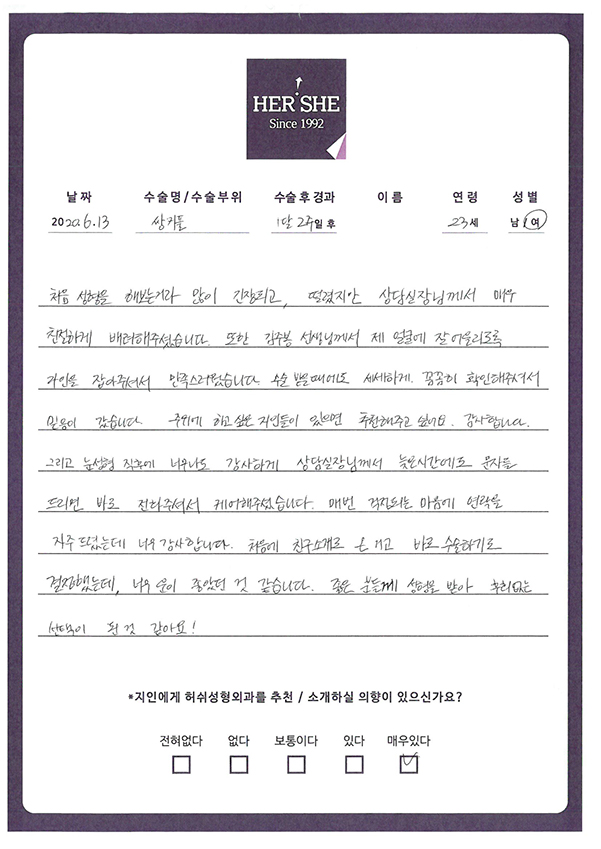 HER SHE
Since 1992
날짜 수술명/수술부위 수술후경과 이름 연령 성별
2020.6.13 쌍커풀 1달 2주일 후 23세 남/여
처음 성형을 해보는거라 많이 긴장되고, 떨렸지만 상담실장님께서 매우
친절하게 배려해주셨습니다. 또한 김주봉 선생님께서 제 얼굴에 잘 어울리도록
라인을 잡아주셔서 만족스러웠습니다. 수술 받을때에도 세세하게. 꼼꼼히 확인해주셔서
믿음이 갔습니다. 주위에 하고 싶은 지인들이 있으면 추천해주고 싶어요. 감사합니다.
그리고 눈성형 직후에 너무나도 감사하게 상담실장님께서 늦은시간에도 문자를
드리면 바로 전화주셔서 케어해주셨습니다. 매번 걱정되는 마음에 연락을
자주 드렸는데 너무 감사합니다. 처음에 친구소개로 온 거고 바로 수술하기로
결정했는데, 너무 운이 좋았던 것 같습니다. 좋은 분들께 성형을 받아 후회없는
선택이 된 것 같아요!
*지인에게 허쉬성형외과를 추천 / 소개하실 의향이 있으신가요?
전혀없다 없다 보통이다 있다 매우있다